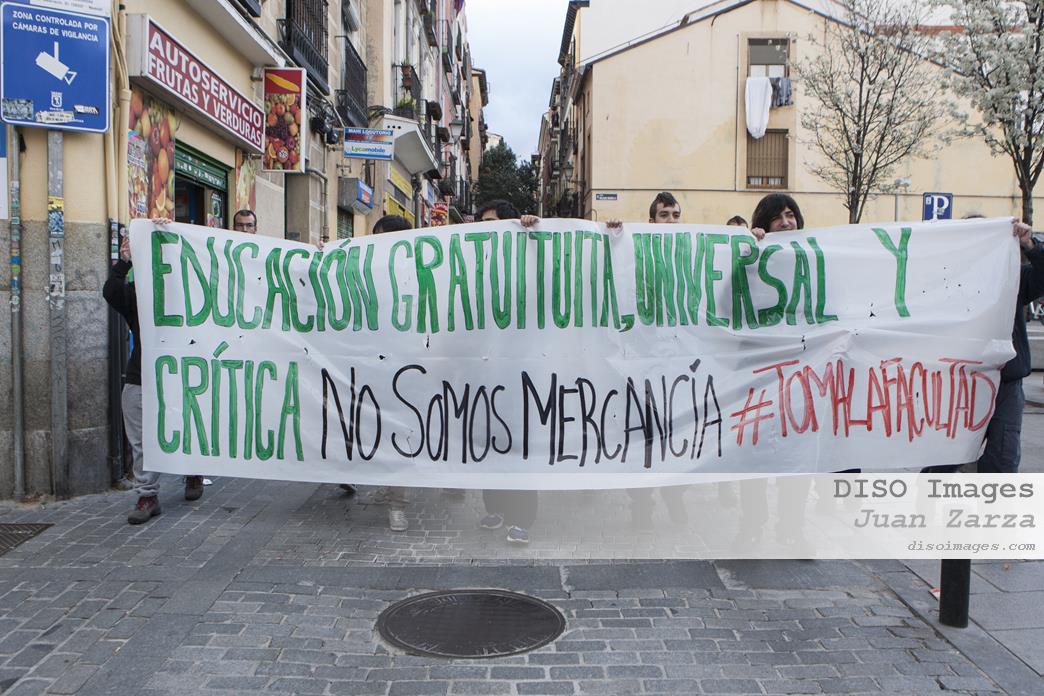 ZONA CONTROLADA POR
CÁMARAS DE VIGILANCIA
AUTOSERVICIO
FRUTAS Y VERDURAS
MAHI LOCUTORIO
Lycamobile
P
EDUCACIÓN GRATUITUITA, UNIVERSAL Y
CRÍTICA NO SOMOS MERCANCÍA #TOMALAFACULTAD
DISO Images
Juan Zarza
disoimages.com